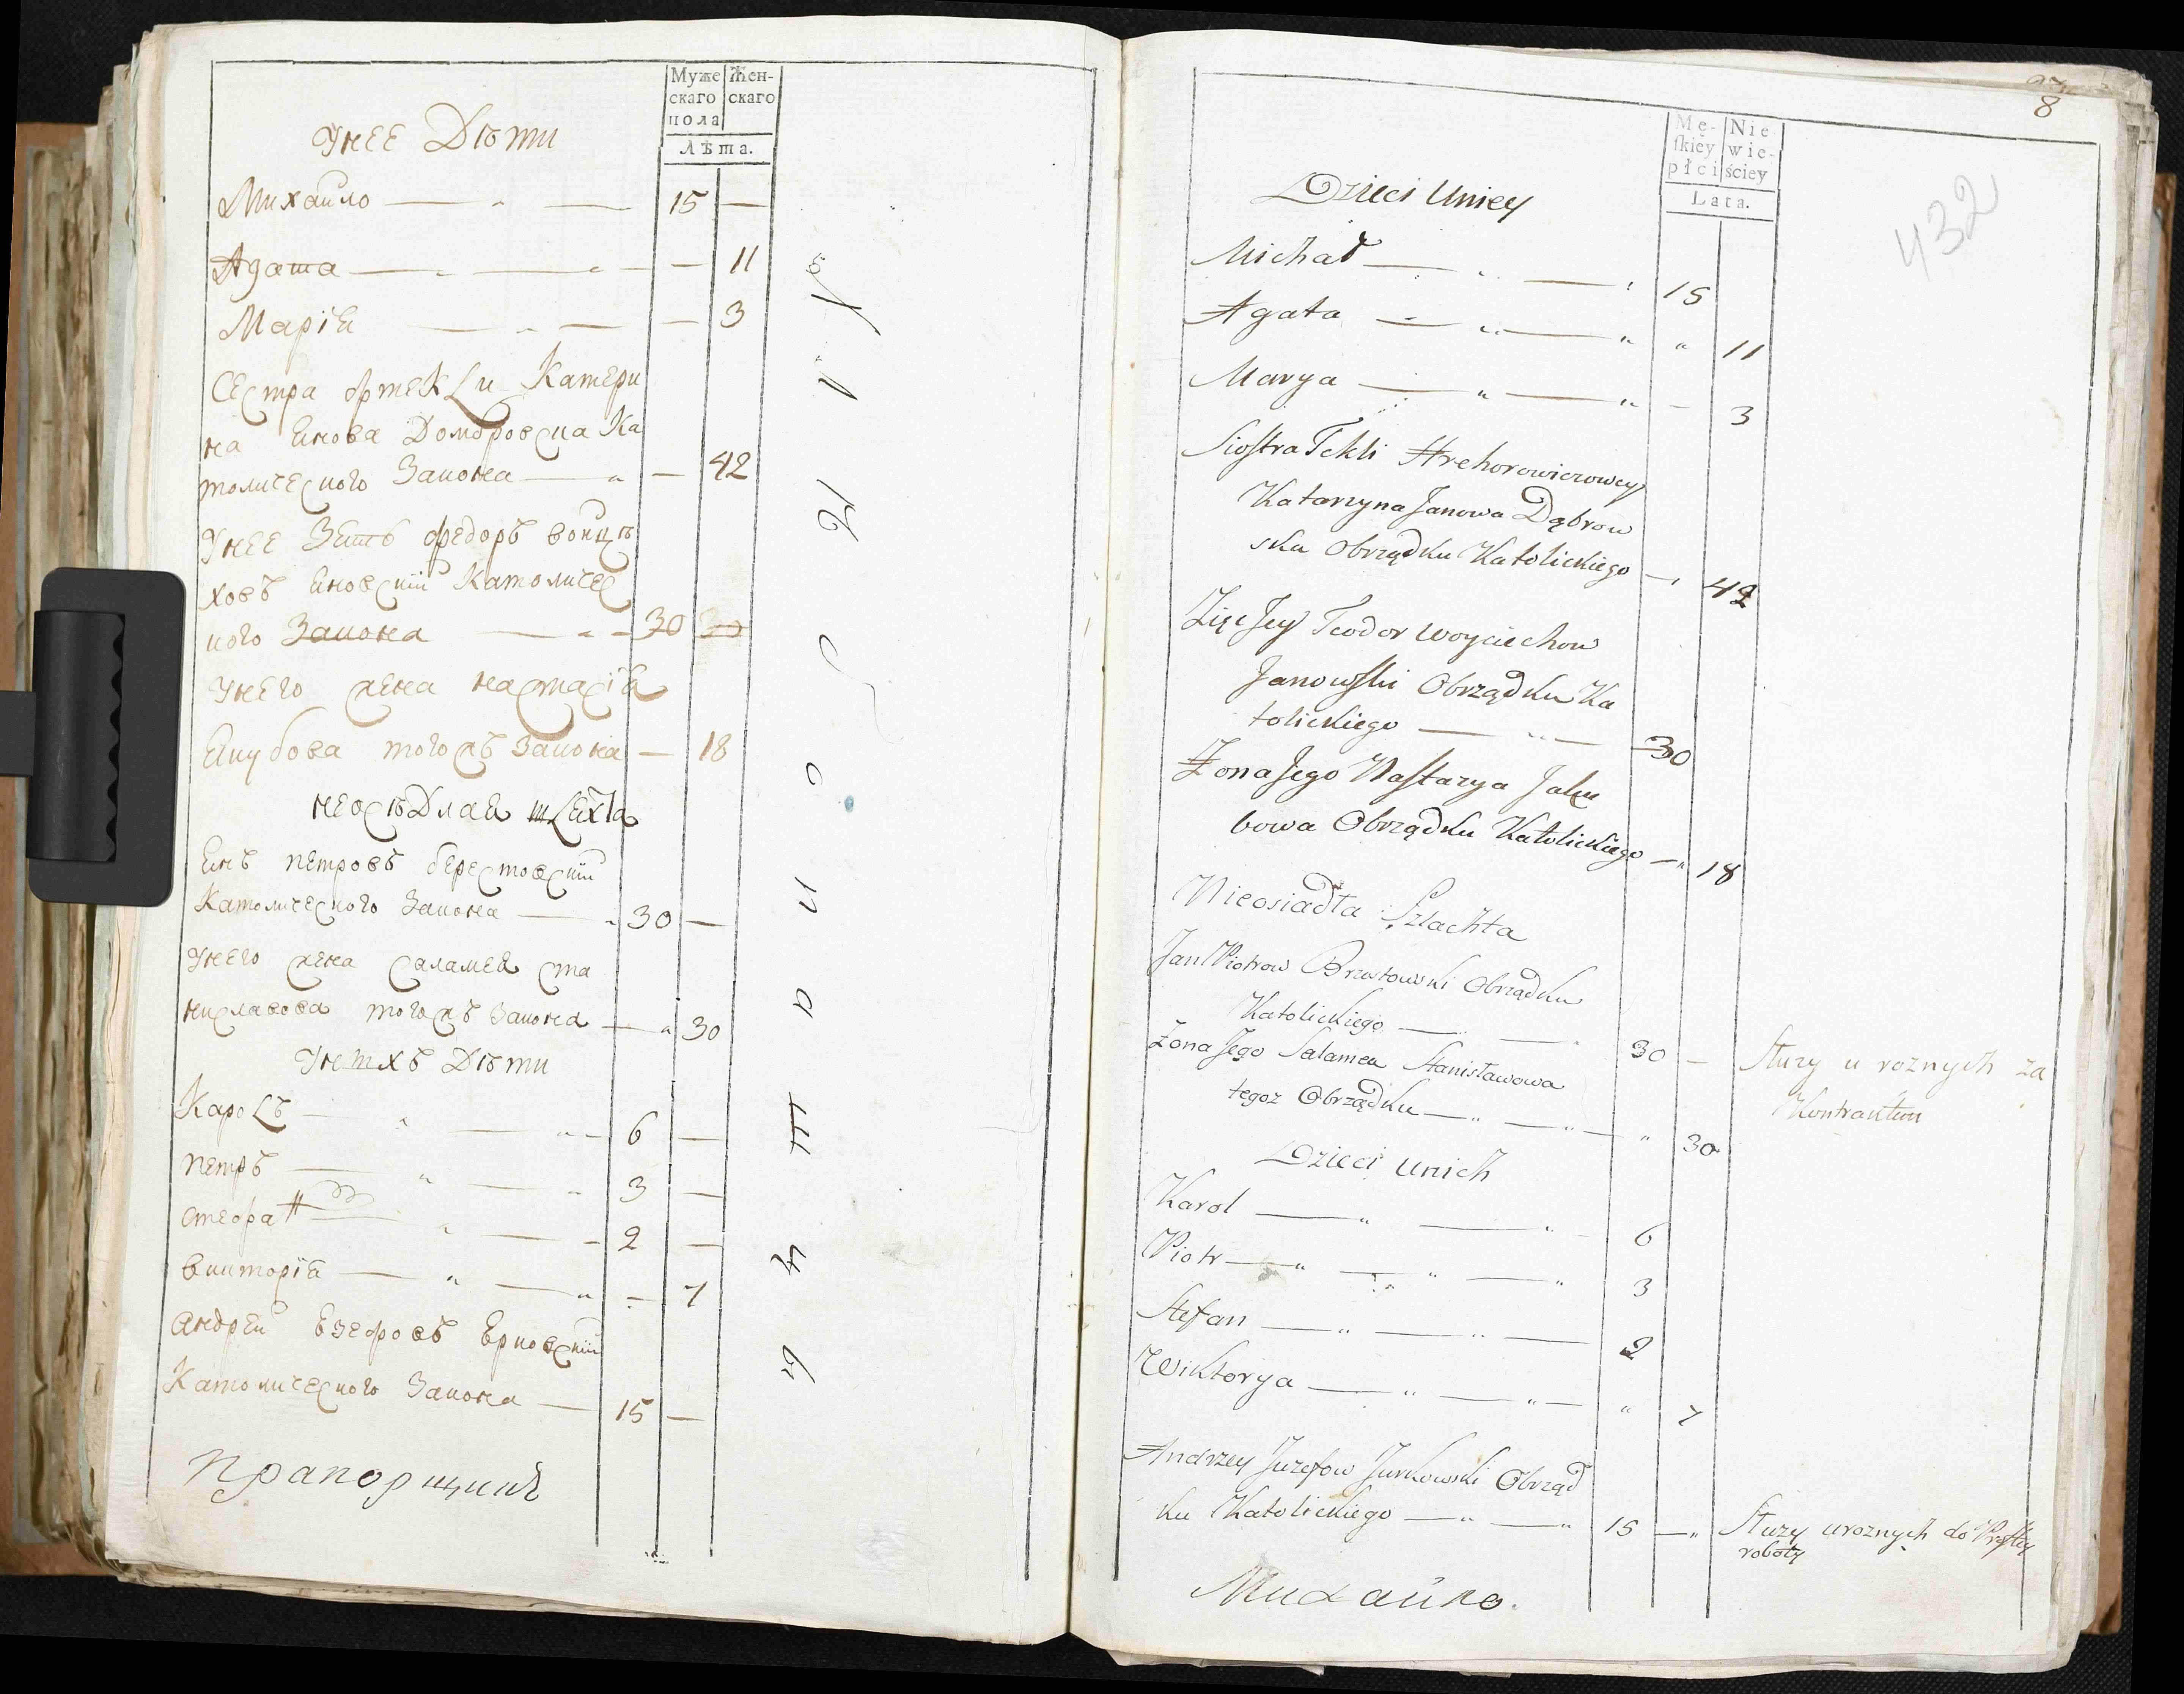 Муже
скаго
пола
Жен-
скаго
Лѣта.
Унее Дѣти
Михайло 15 —
Агата — 11
Марія — 3
Сестра Катери
на Янова Домбровска Ка
толического Закона — 42
Унее Зять Федоръ Войцѣ
ховъ Яновскій Католичес
кого Закона 30 30
Унего жена Настасія
Якубова тогожъ Закона — 18
Неосѣдлая шляхта
Янъ Петровъ Берестовскій
Католического Закона 30 —
Унего жена Саламея Ста
ниславова тогожъ Закона — 30
Унихъ Дѣти
Кароль 6 —
Петръ 3 —
Стефанъ 2 —
Викторія — 7
Андрей Езефовъ Юрковскій
Католического Закона 15 —
Прапорщикъ
8
432
Mę-
skiey
płci
Nie
wie-
ściey
Lata.
Dzieci Uniey
Michał 15
Agata " 11
Marya — 3
Siostra Tekli Hrehorowiczowey
Katarzyna Janowa Dąbrow
ska Obrządku Katolickiego — 42
Zięć Jey Teodor Woyciechow
Janowski Obrządku Ka
tolickiego 30
Żona Jego Nastazya Jaku
bowa Obrządku Katolickiego — 18
Nieosiadła Szlachta
Jan Piotrow Brzostowski Obrządku
Katolickiego 30 — Służy u roznych za
Kontraktem
Żona Jego Salamea Stanisławowa
tegoż Obrządku " 30
Dzieci unich
Karol 6
Piotr 3
Stefan 2
Wiktorya " 7
Andrzey Juzefow Jurkowski Obrząd
ku Katolickiego 15 — Służy uroznych do Prostey
roboty
Михайло.